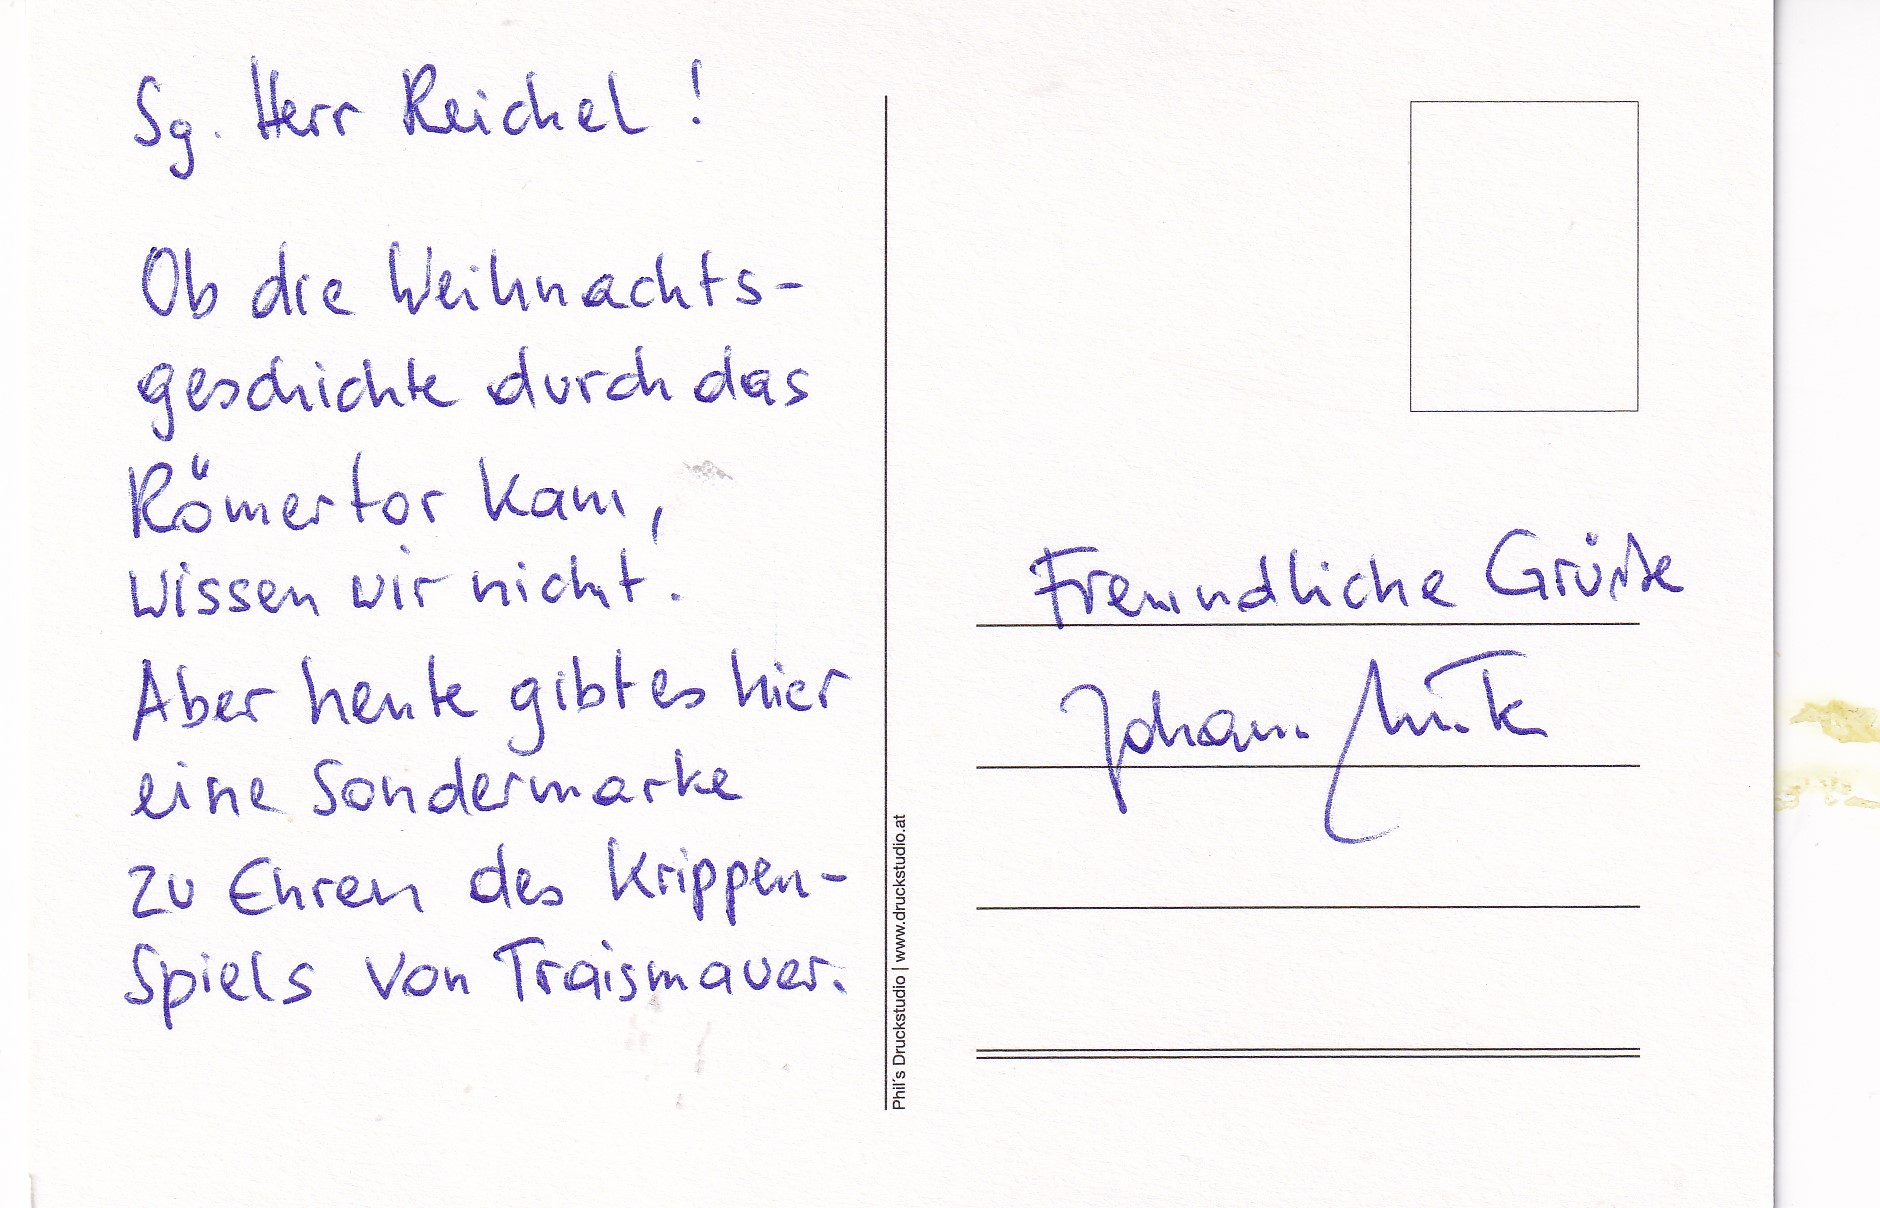 Sg. Herr Reichel !
Ob die Weihnachts-
geschichte durch das
Römertor kam,
wissen wir nicht.
Aber heute gibt es hier
eine Sondermarke
zu Ehren des Krippen-
spiels von Traismauer.
Phil´s Druckstudio | www.druckstudio.at
Freundliche Grüße
Johann